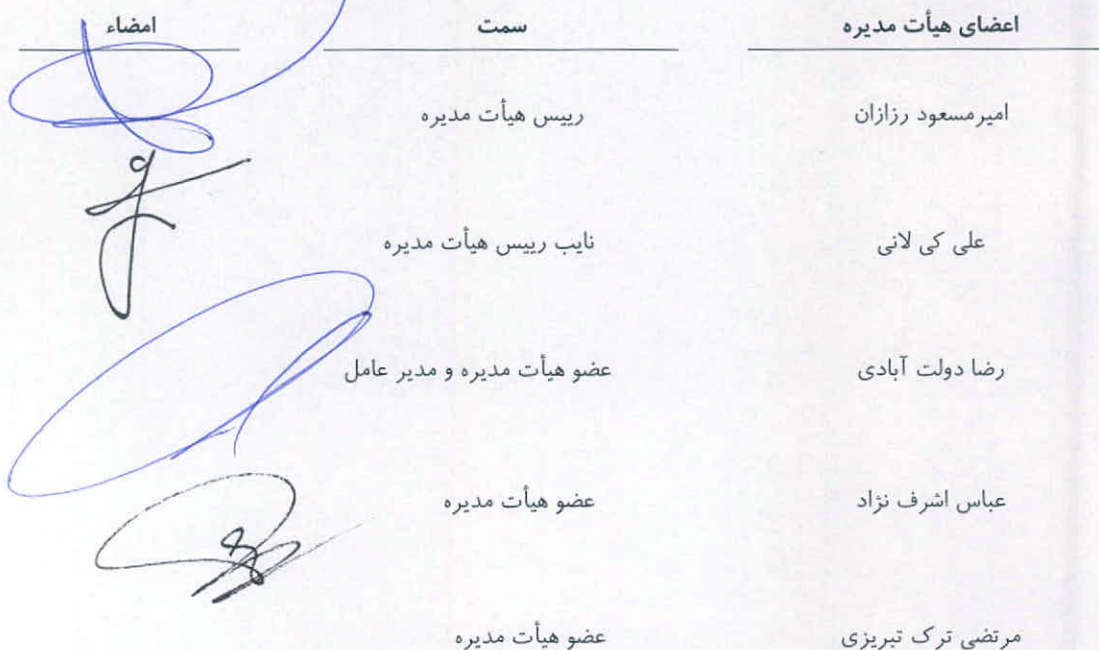 اعضای هیأت مدیره سمت امضاء
امیرمسعود رزازان رییس هیأت مدیره
علی کی لانی نایب رییس هیأت مدیره
رضا دولت آبادی عضو هیأت مدیره و مدیر عامل
عباس اشرف نژاد عضو هیأت مدیره
مرتضی ترک تبریزی عضو هیأت مدیره